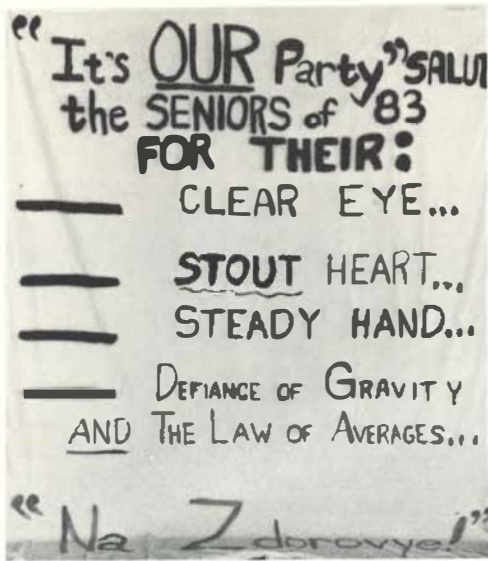 ““It's OUR Party” SALUT
the SENIORS of '83
FOR THEIR:
— CLEAR EYE...
— STOUT HEART...
— STEADY HAND...
— DEFIANCE OF GRAVITY
AND THE LAW OF AVERAGES...
“Na Zdorovye!”